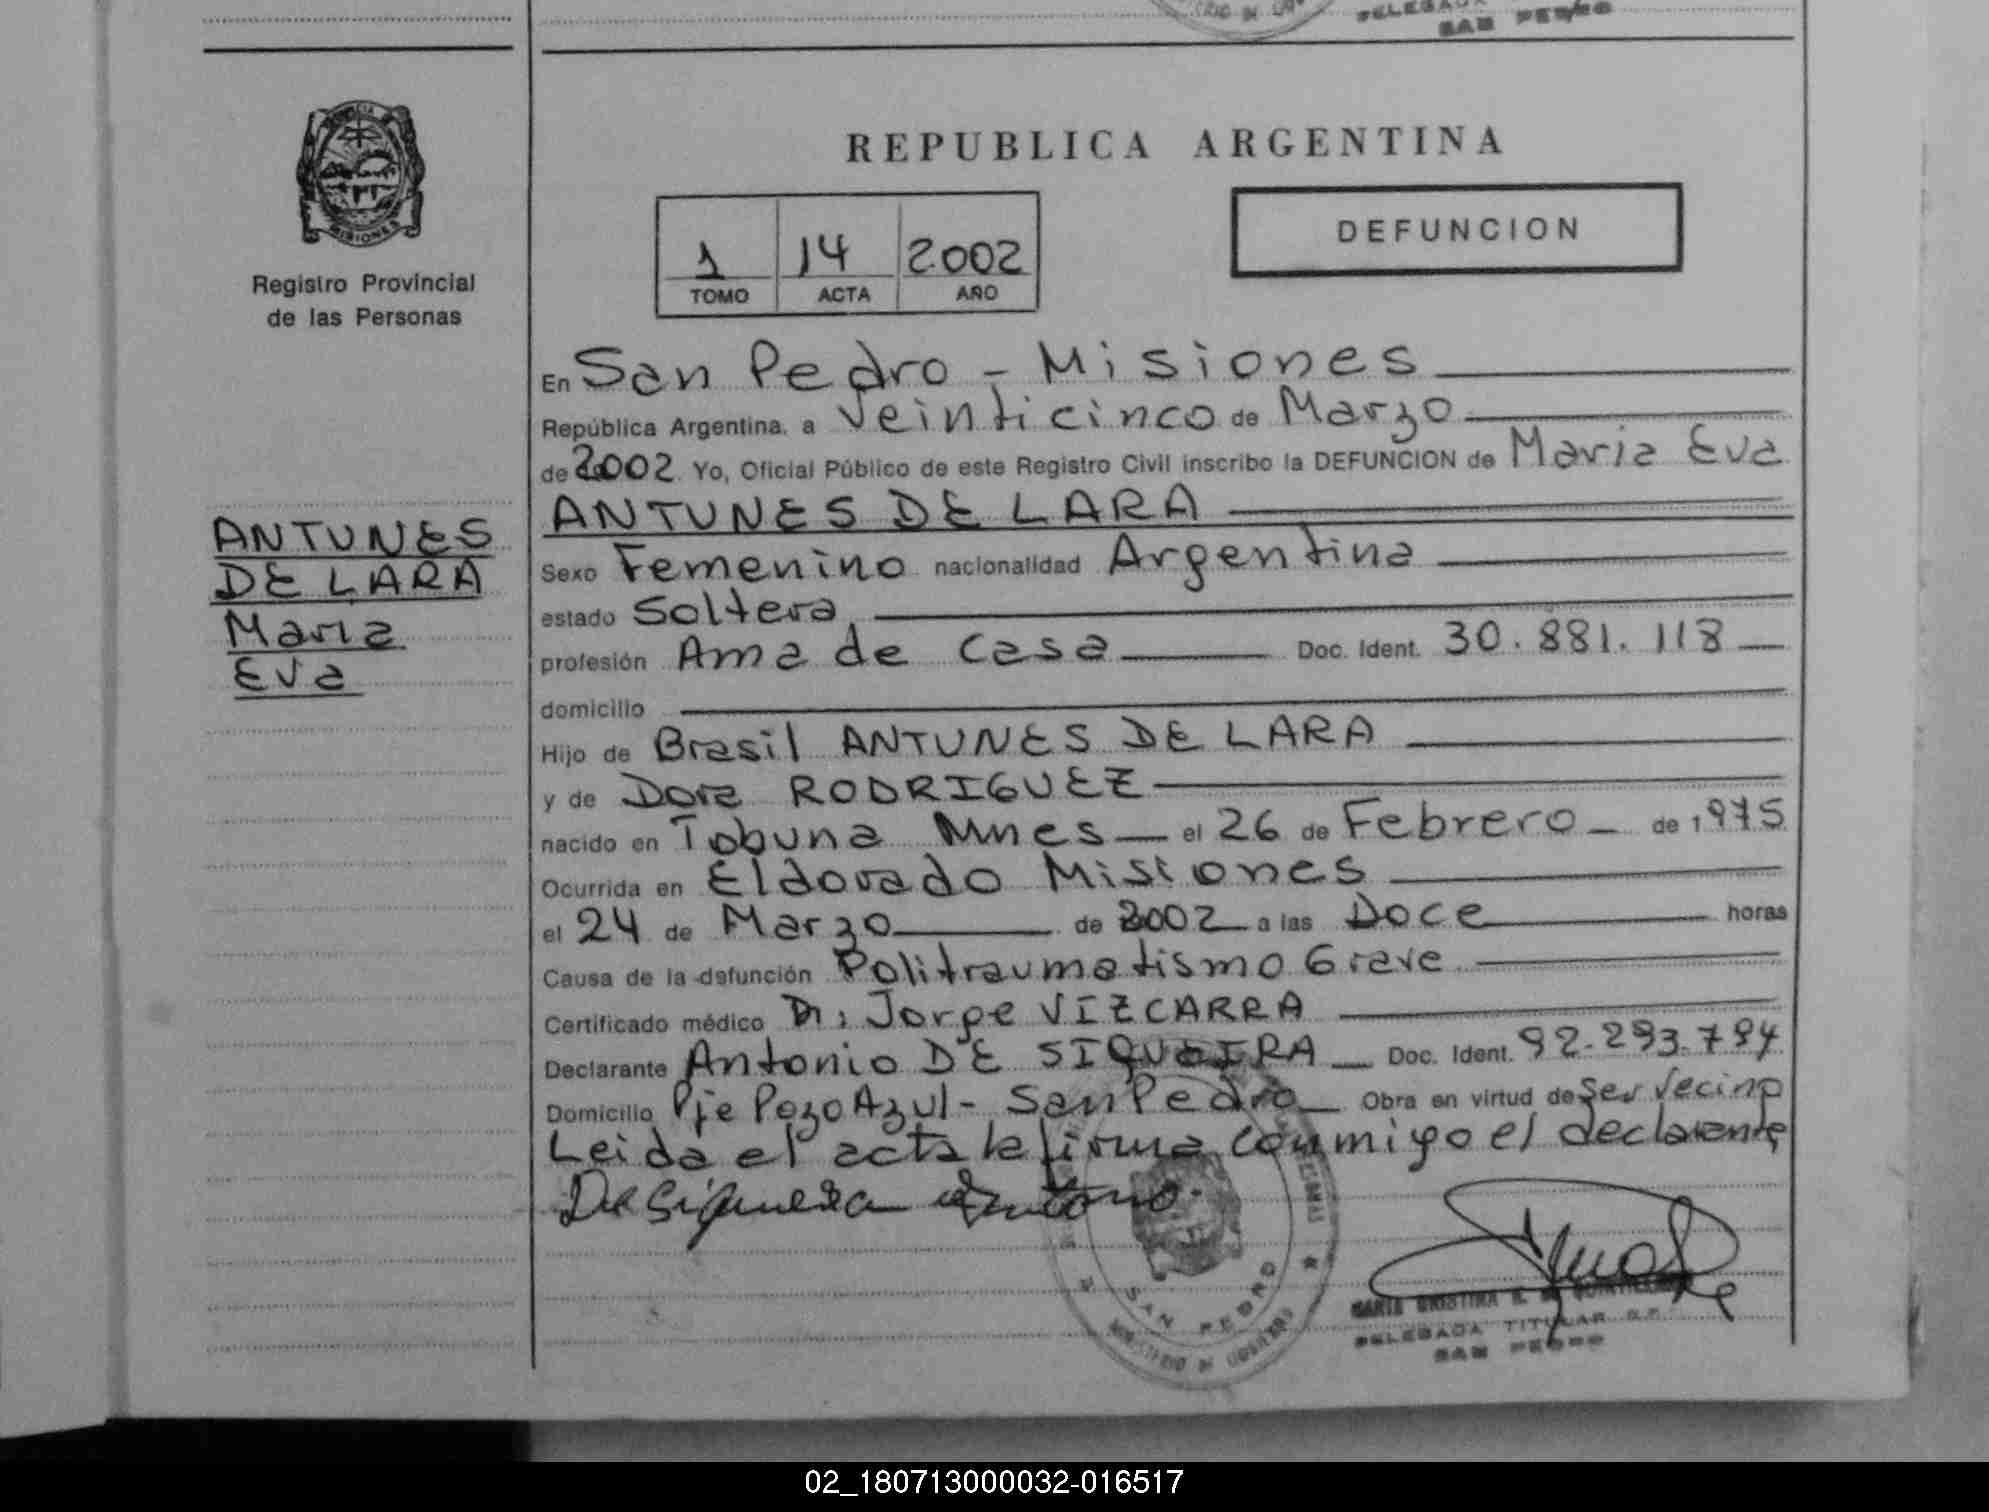 SAN PEDRO
REPUBLICA ARGENTINA
DEFUNCION
1 14 2002
TOMO ACTA AÑO
Registro Provincial
de las Personas
ANTUNES
DE LARA
Maria
Eva
En San Pedro - Misiones
República Argentina, a Veinticinco de Marzo
de 2002 Yo, Oficial Público de este Registro Civil inscribo la DEFUNCION de Maria Eva
ANTUNES DE LARA
Sexo Femenino nacionalidad Argentina
estado Soltera
profesión Ama de Casa Doc. Ident. 30.881.118
domicilio
Hijo de Brasil ANTUNES DE LARA
y de Dora RODRIGUEZ
nacido en Tobuna Mnes el 26 de Febrero de 1975
Ocurrida en Eldorado Misiones
el 24 de Marzo de 2002 a las Doce horas
Causa de la defunción Politraumatismo Grave
Certificado médico Dr: Jorge VIZCARRA
Declarante Antonio DE SIQUEIRA Doc. Ident. 92.293.794
Domicilio Pje Pozo Azul - San Pedro Obra en virtud de ser vecino
Leida el acta la firma conmigo el declarante
De Siqueira Antonio
SAN PEDRO
MINISTERIO DE GOBIERNO
DELEGADA TITULAR
SAN PEDRO
02_180713000032-016517